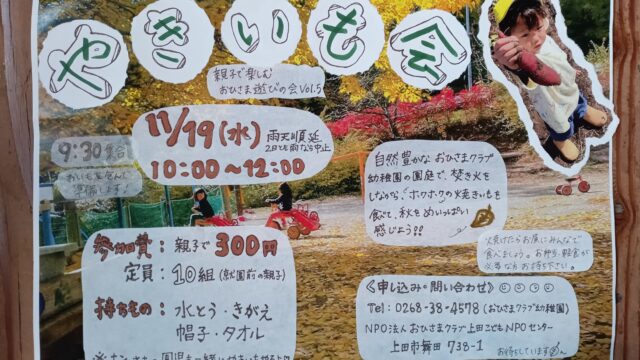 やきいも会
親子で楽しむ
おひさま遊びの会 Vol.5
11/19(水) 雨天順延
2日とも雨なら中止
10:00～12:00
9:30集合
準備します!
自然豊かな おひさまクラブ
幼稚園の園庭で、焚き火を
しながら、ホクホクの焼きいもを
食べて、秋をめいっぱい
感じよう!!
焼けたらお庭にみんなで
食べましょう。お弁当・軽食が
必要な方お持ち下さい。
参加費: 親子で 300円
定員: 10組(就園前の親子)
持ちもの: 水とう・きがえ
帽子・タオル
《申し込み・問い合わせ》
Tel: 0268-38-4578(おひさまクラブ幼稚園)
NPO法人 おひさまクラブ 上田こどもNPOセンター
上田市舞田 738-1
お待ちしています